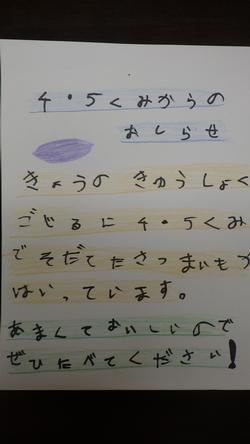 4・5くみからの
おしらせ
きょうの きゅうしょく
ごじるに 4・5くみ
でそだてたさつまいもが
はいっています。
あまくておいしいので
ぜひたべてください!